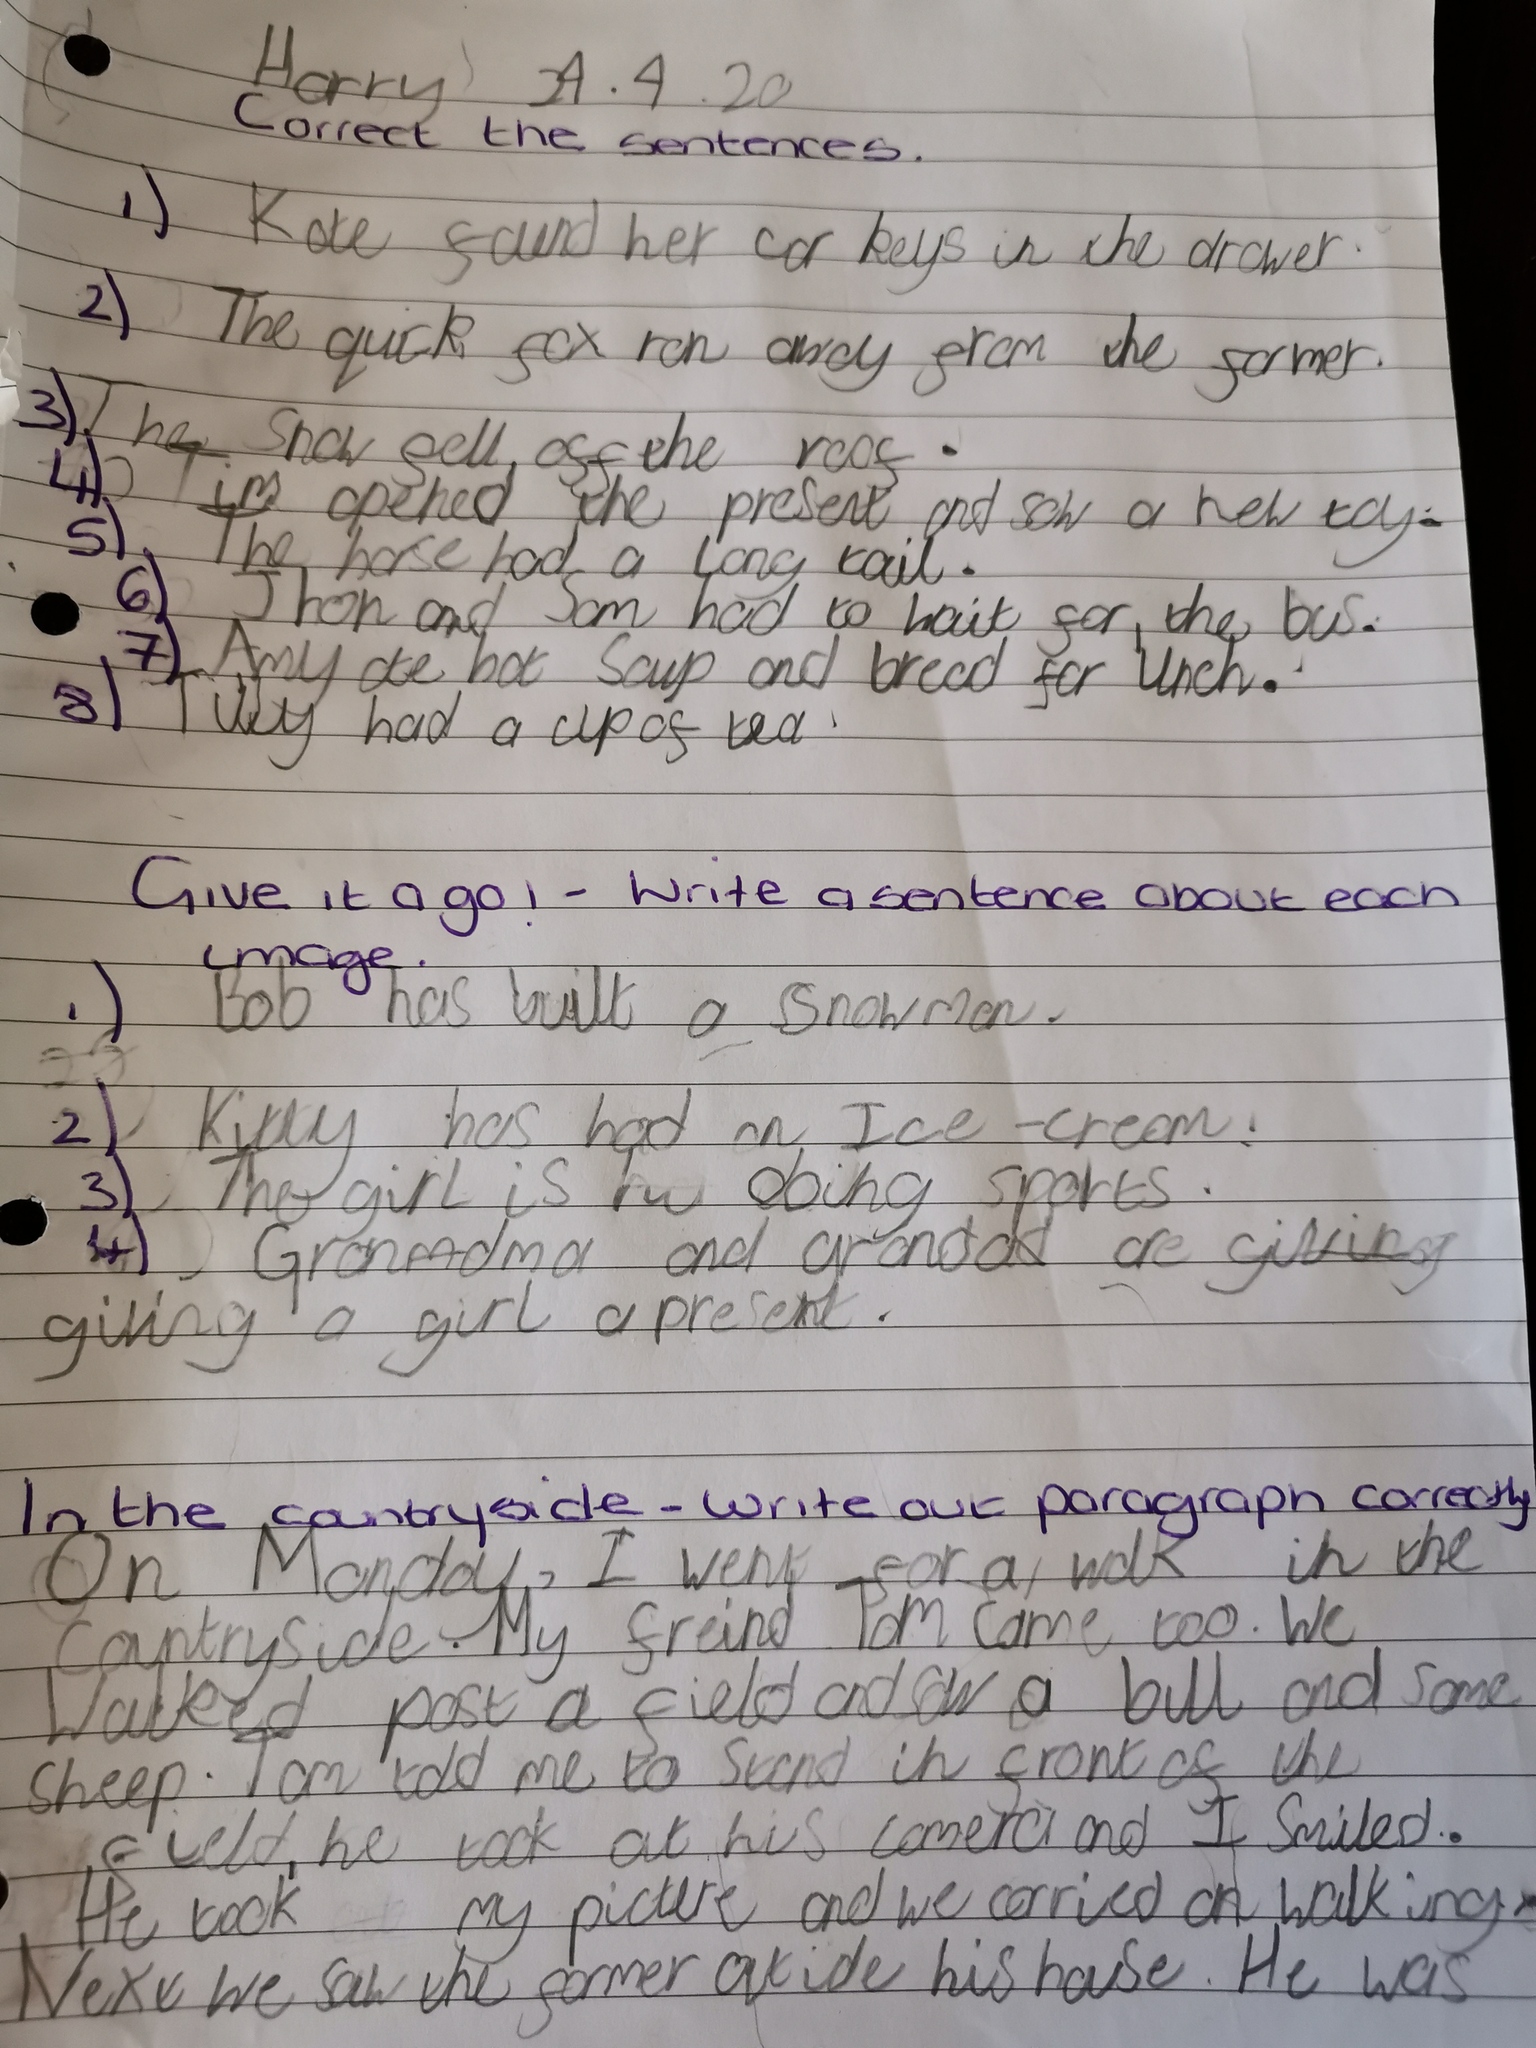 Harry 21.4.20
Correct the sentences.
1) Kate found her car keys in the drawer.
2) The quick fox ran away from the farmer.
3) The snow fell off the roof.
4) Tim opened the present and saw a new toy.
5) The horse had a long tail.
6) Jhon and Sam had to wait for the bus.
7) Amy ate hot soup and bread for lunch.
8) Tilly had a cup of tea.
Give it a go! - Write a sentence about each
image.
1) Bob has built a snowman.
2) has had an Ice-cream.
3) The girl is doing sports.
4) and grandad are giving
giving a girl a present.
In the countryside - Write out paragraph correctly
On Monday, I went for a walk in the
Countryside. My freind Tom came too. We
Walked past a field and saw a bull and some
sheep. Tom told me to stand in front of the
field, he took at his camera and I smiled.
He took my picture and we carried on walking.
Next we saw the farmer outide his house. He was